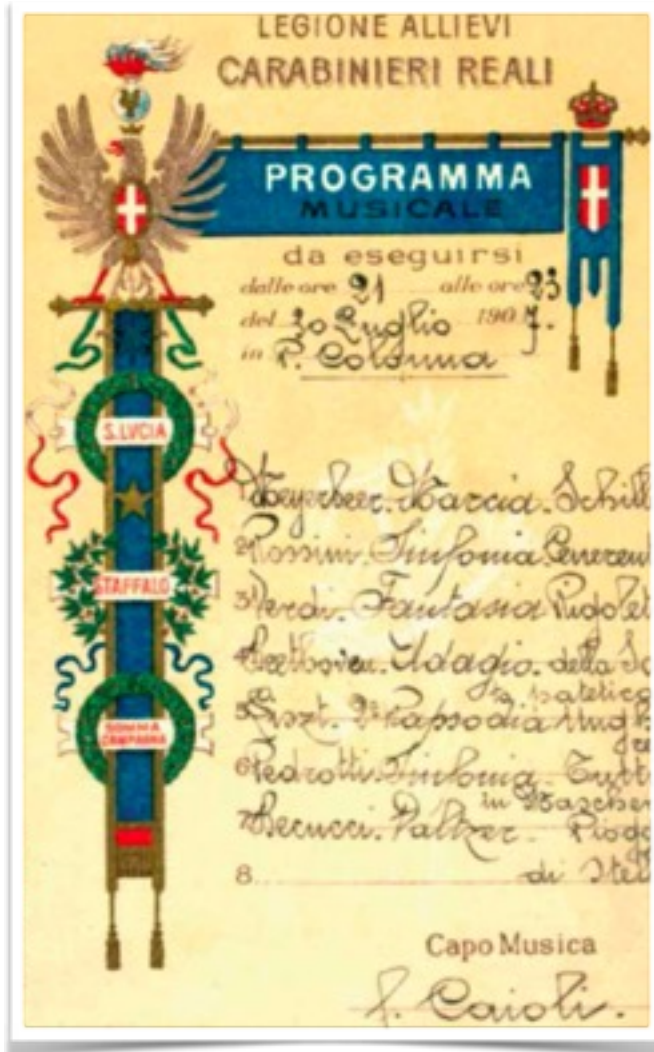 LEGIONE ALLIEVI
CARABINIERI REALI
PROGRAMMA
MUSICALE
da eseguirsi
dalle ore 21 alle ore 23
del 30 Luglio 1907.
in P. Colonna
S. LVCIA
STAFFALO
SOMMA
CAMPAGNA
1 Meyerbeer. Marcia. Schill
2 Rossini. Sinfonia Cenerent
3 Verdi. Fantasia Rigolet
4 Beethoven. Adagio. della So
patetica
5 Liszt. 2ª Rapsodia Ungh
6 Pedrotti. Sinfonia Tutt
in Mascher
7 Becucci. Valtzer. Piogg
8. di Stel
Capo Musica
L. Caioli.